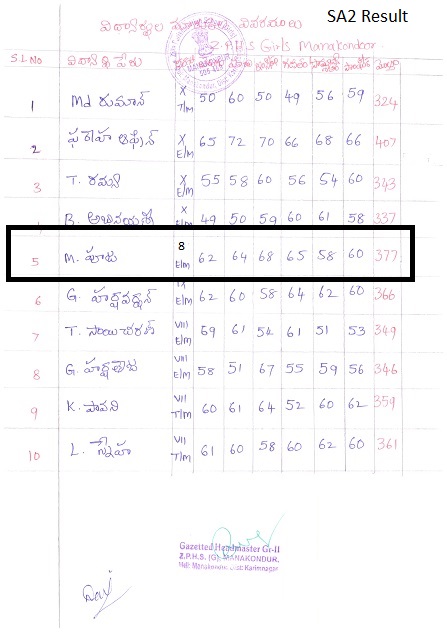 SA2 Result
విద్యార్థుల వివరములు
Z.P.H.S Girls Manakondoor
S.L.No విద్యార్థి పేరు
1 Md రుమాన్ X T/M 50 60 50 49 56 59 324
2 X E/M 65 72 70 66 68 66 407
3 T. రమ్య X E/M 55 58 60 56 54 60 343
B. 49 50 59 60 61 58 337
5 M. పూజ 8 E/M 62 64 68 65 58 60 377
6 G. హర్షవర్ధన్ E/M 62 60 58 64 62 60 366
7 T. సాయిచరణ్ VIII E/M 59 61 54 61 51 53 349
8 G. VIII E/M 58 51 67 55 59 56 346
9 K. పావని VII T/M 60 61 64 52 60 62 359
10 L. స్నేహ VII T/M 61 60 58 60 62 60 361
Gazetted Headmaster Gr-II
Z.P.H.S. (G). MANAKONDUR,
Mdl: Manakondur Dist: Karimnagar